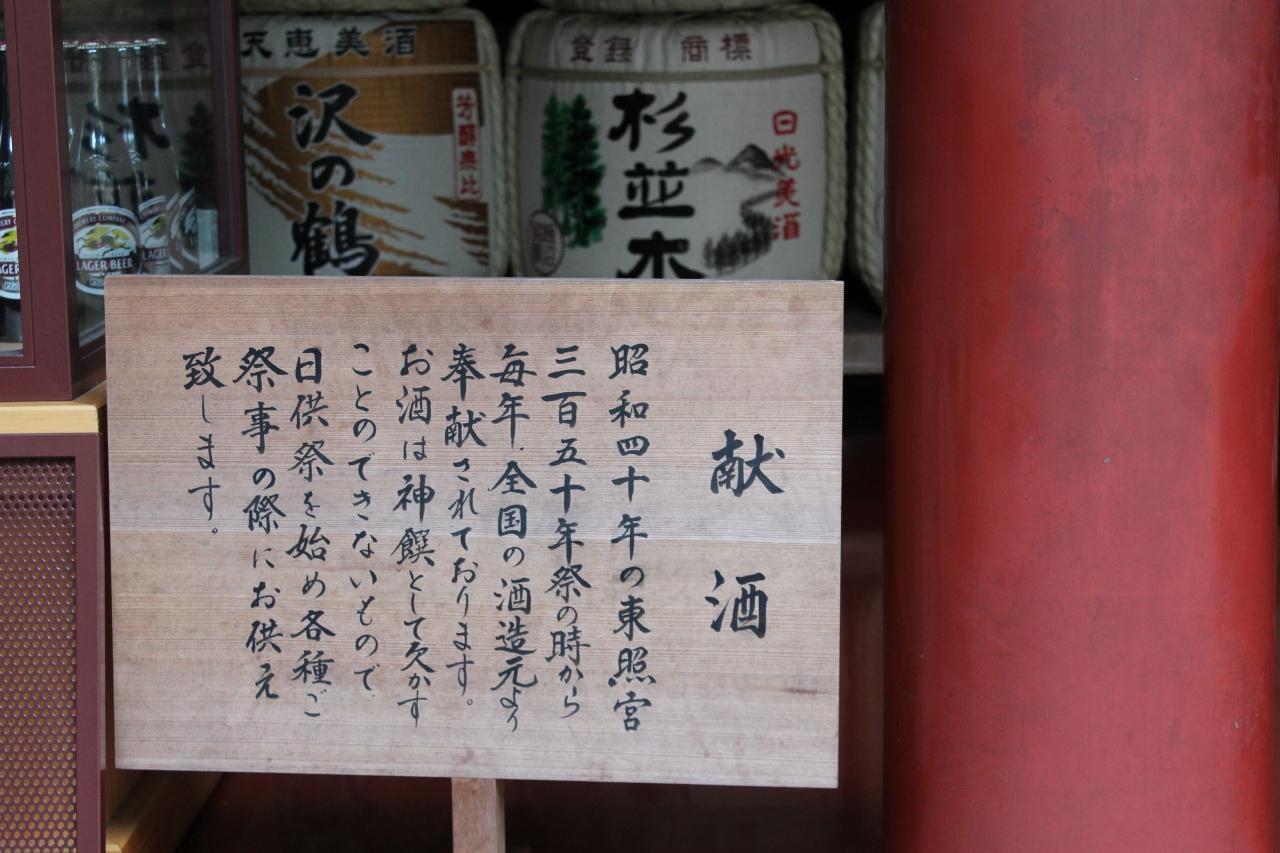 献酒
昭和四十年の東照宮
三百五十年祭の時から
毎年、全国の酒造元より
奉献されております。
お酒は神饌として欠かす
ことのできないもので、
日供祭を始め各種ご
祭事の際にお供え
致します。
登録 商標
杉並木
日光美酒
天恵美酒
沢の鶴
芳醇無比
LAGER BEER
LAGER
LAGER BEER